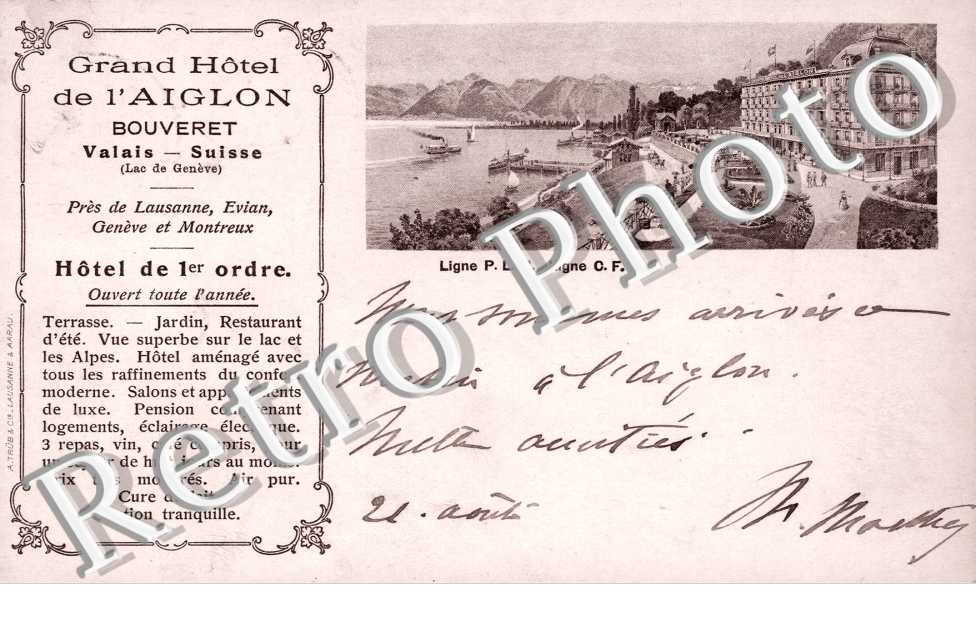 Grand Hôtel
de l'AIGLON
BOUVERET
Valais — Suisse
(Lac de Genève)
Près de Lausanne, Evian,
Genève et Montreux
Hôtel de 1er ordre.
Ouvert toute l'année.
Terrasse. — Jardin, Restaurant
d'été. Vue superbe sur le lac et
les Alpes. Hôtel aménagé avec
tous les raffinements du
moderne. Salons et
de luxe. Pension
logements, éclairage
3 repas, vin,
au
Air pur.
Cure
tranquille.
A. TRÜB & Cie. LAUSANNE & AARAU.
AIGLON
Ligne P.
C. F.
Nous sommes arrivés ce
matin à l'Aiglon.
Mille amitiés.
21. août
Retro Photo